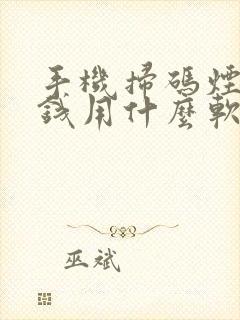 手機掃碼煙
錢用什麼軟
巫斌